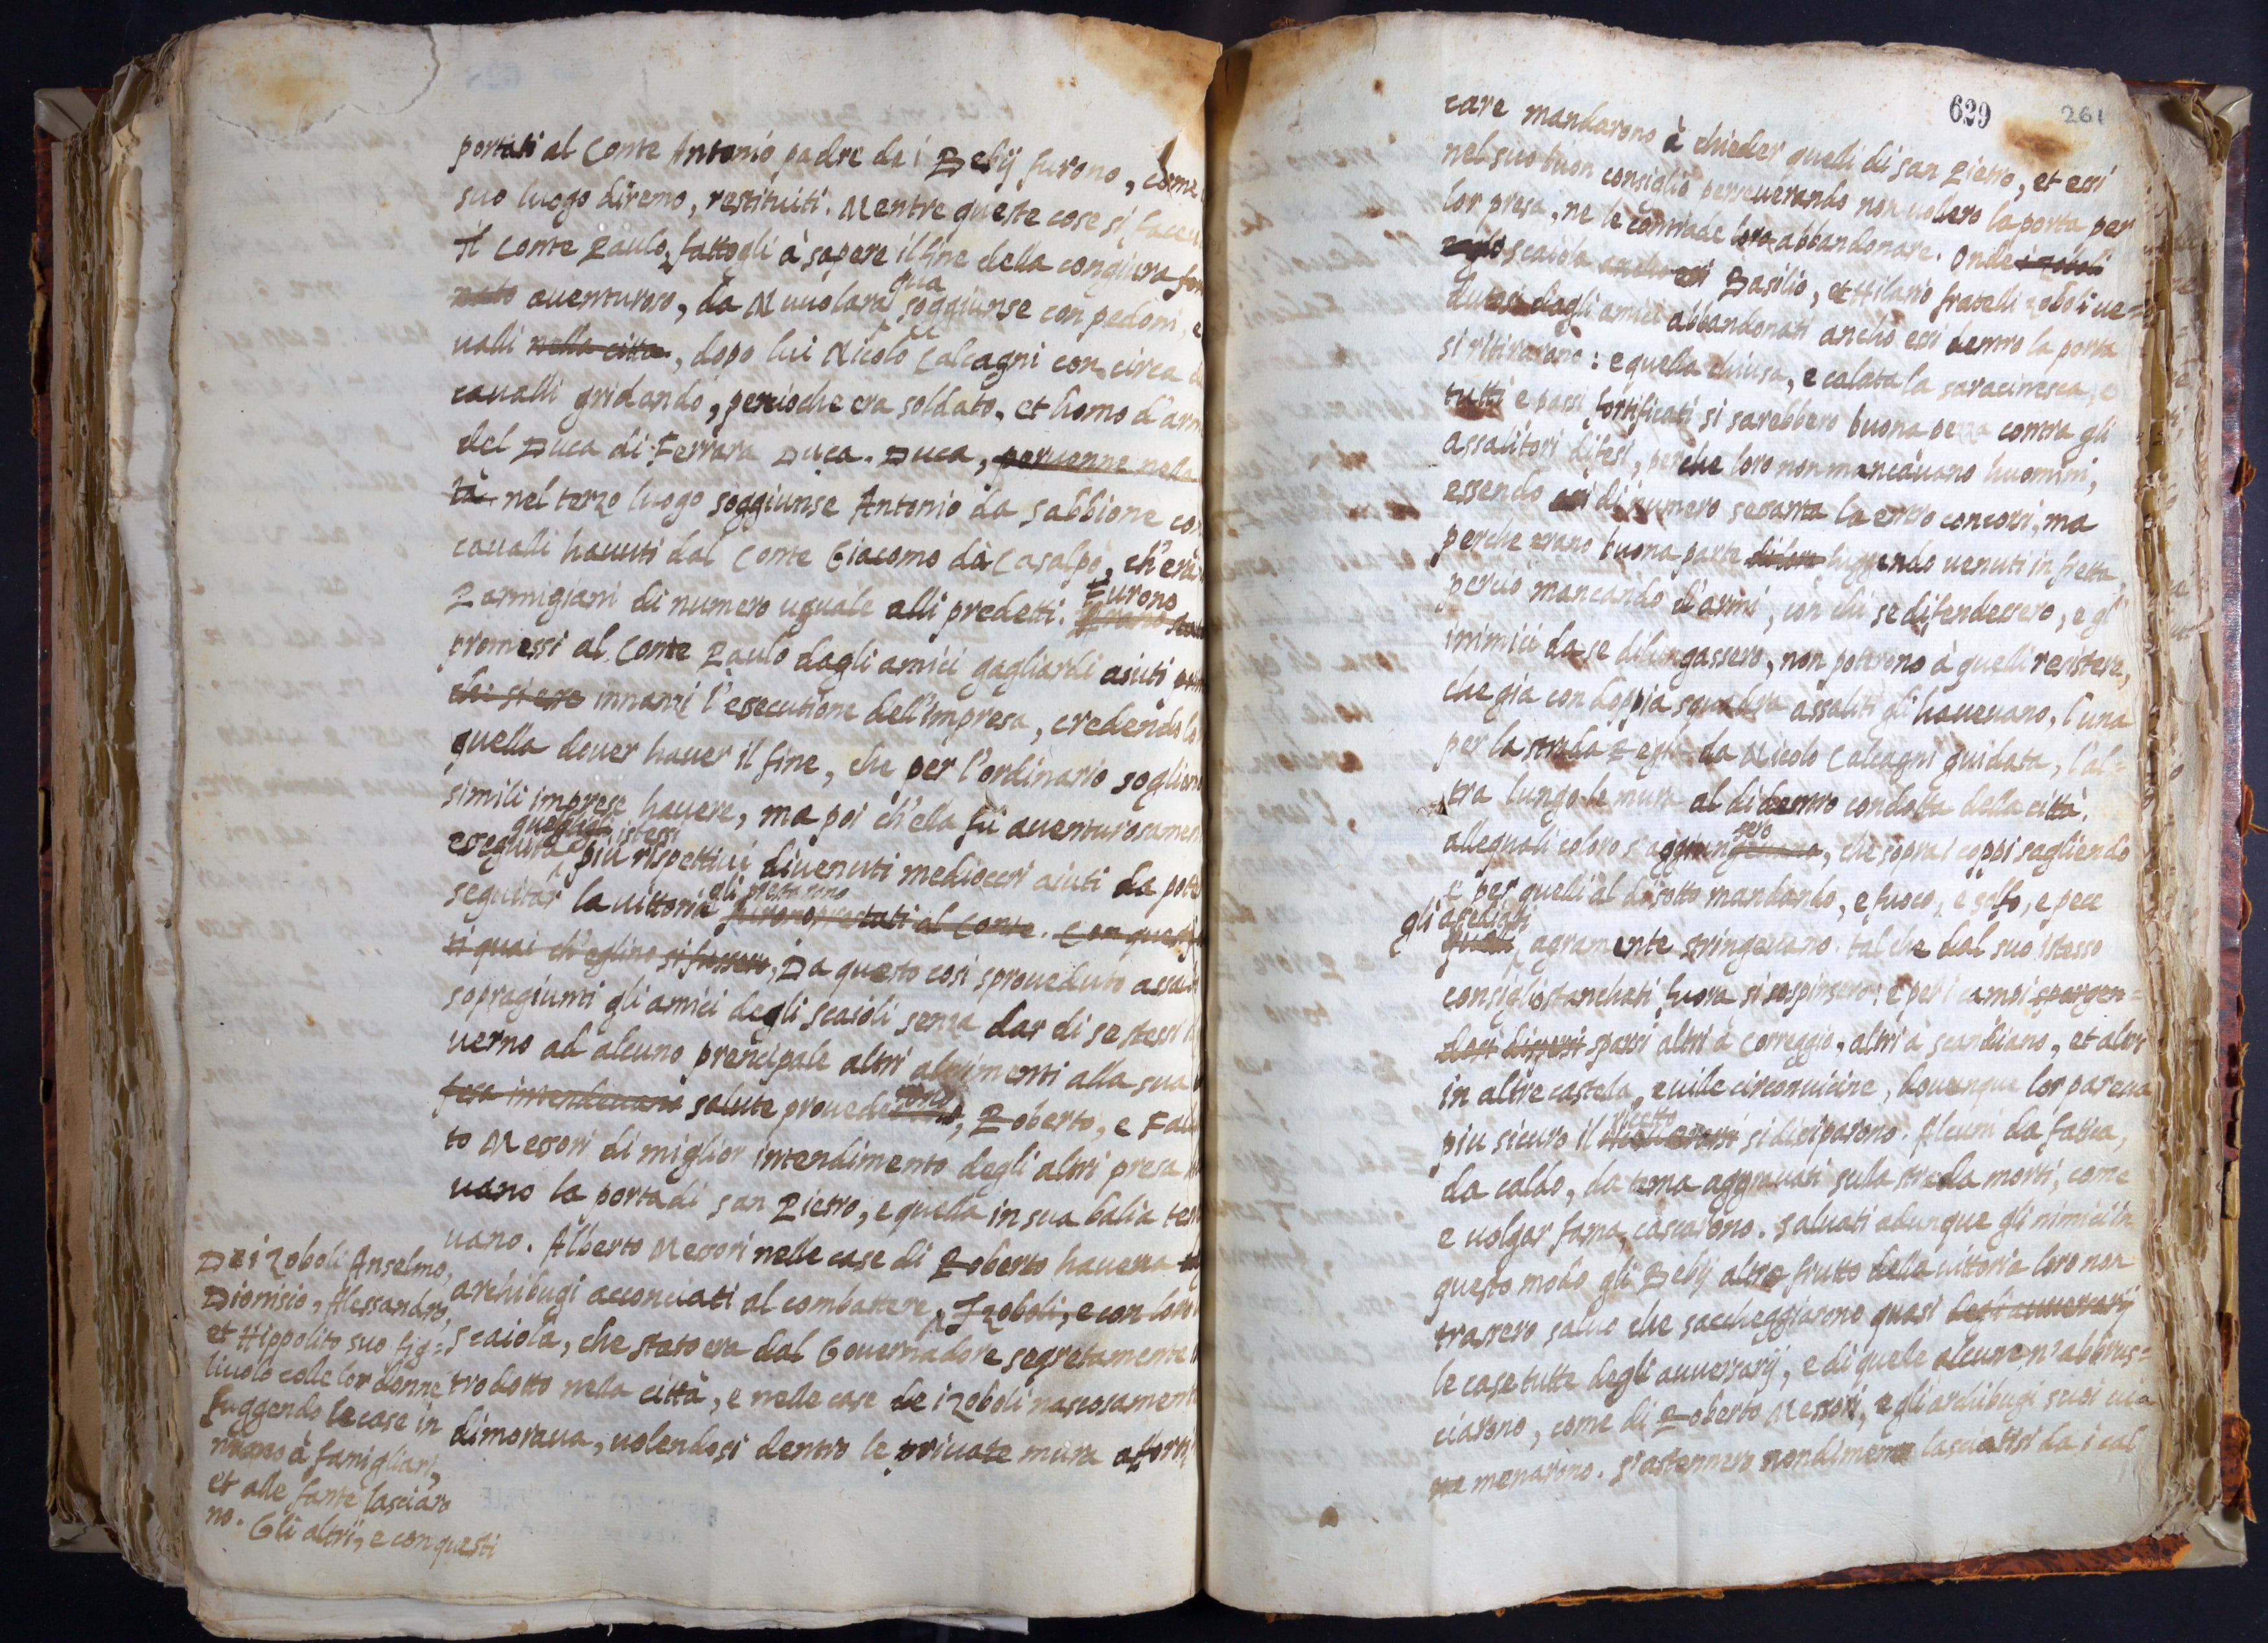 portati al Conte Antonio padre de i Bebij furono, come
suo luogo diremo, restituiti. Mentre queste cose si face
Il Conte Paulo, fattogli à sapere il fine della congiura
auenturoso, da Nuuolara qua soggiunse con pedoni, e
ualli nella città, dopo lui Nicolò Calcagni con circa
caualli gridando, percioche era soldato, et homo d'arm
del Duca di Ferrara Duca. Duca, peruenne nella
tà nel terzo luogo soggiunse Antonio da Sabbione co
caualli hauuti dal Conte Giacomo da Casalpò, ch'era
Parmigiani di numero uguale alli predetti. Furono
promessi al Conte Paulo dagli amici gagliardi aiuti
innanzi l'esecutione dell'impresa, credendo lo
quella douer hauer il fine, che per l'ordinario sogliono
simili imprese hauere, ma poi ch'ella fù auenturosamen
eseguita quegli istessi più rispettiui diuenuti mediocri aiuti da pote
seguitar la uittoria gli prestarono furono prestati al Conte. Con questi
ti quai ch'eglino si fussero, Da questo così sproueduto assa
sopragiunti gli amici degli Scaioli senza dar di se stessi
uerno ad alcuno prencipale altri altrimenti alla sua
fesa intendeuano salute prouederono, Roberto, e Fau
to Messori di miglior intendimento degli altri presa
uano la porta di san Pietro, e quella in sua balìa ten
uano. Alberto Messori nelle case di Roberto haueua
archibugi acconciati al combattere, I Zoboli, e con loro
Scaiola, che stato era dal Gouernadore segretamente
trodotto nella città, e nelle case de i Zoboli nascosamente
dimoraua, uolendosi dentro le priuate mura afforti
Dei Zoboli Anselmo,
Dionisio, Alessandro,
et Hippolito suo fig=
liuolo colle lor donne
fuggendo le case in
mano à famigliari,
et alle fante lasciaro
no. Gli altri, e con questi
629 261
care mandarono à chieder quelli di san Pietro, et essi
nel suo buon consiglio perseuerando non uolero la porta per
lor presa, ne le contrade loro abbandonare. Onde i Zoboli
Scaiola Basilio, et Hilario fratelli Zoboli ue=
dutesi dagli amici abbandonati anchò essi dentro la porta
si ritirarono: e quella chiusa, e calata la saracinesca, e
tutti e passi fortificati si sarebbero buona pezza contra gli
assalitori difesi, perche loro non mancauano huomini,
essendo essi di numero sessanta la entro concorsi, ma
perche erano buona parte di loro fuggendo uenuti in fretta
perciò mancando d'armi, con chi se difendessero, e gl'
inimici da se dilungassero, non poterono à quelli resistere,
che già con doppia squadra assaliti gli haueuano, l'una
per la strada da Nicolò Calcagni guidata, l'al=
tra lungo le mura al di dentro condotta della città.
allequali coloro s'aggiunsero, che sopra i coppi sagliendo
e per quelli al disotto mandando, e fuoco, e solfo, e pece
gli assediati quelli agramente stringeuano. tal che dal suo istesso
consiglio stanchati, fuora si sospinsero: e per i campi spargen=
dosi dispersi sparsi altri à Correggio, altri à Scandiano, et altri
in altre castella, e uille circonuicine, douunque lor pareua
più sicuro il ricetto si dissiparono. Alcuni da fatica,
da caldo, da tema aggrauati sulla strada morti, come
e uolgar fama, cascarono. Saluati adunque gli nimici in
questo modo gli Bebij altro frutto della uittoria loro non
trassero saluo che saccheggiarono quasi degli auuersarij
le case tutte degli auuersarij, e di quele alcune n'abbrus=
ciarono, come di Roberto Messori, e gli archibugi suoi uia
ne menarono. S'astennero nondimeno lasciatisi da i cal